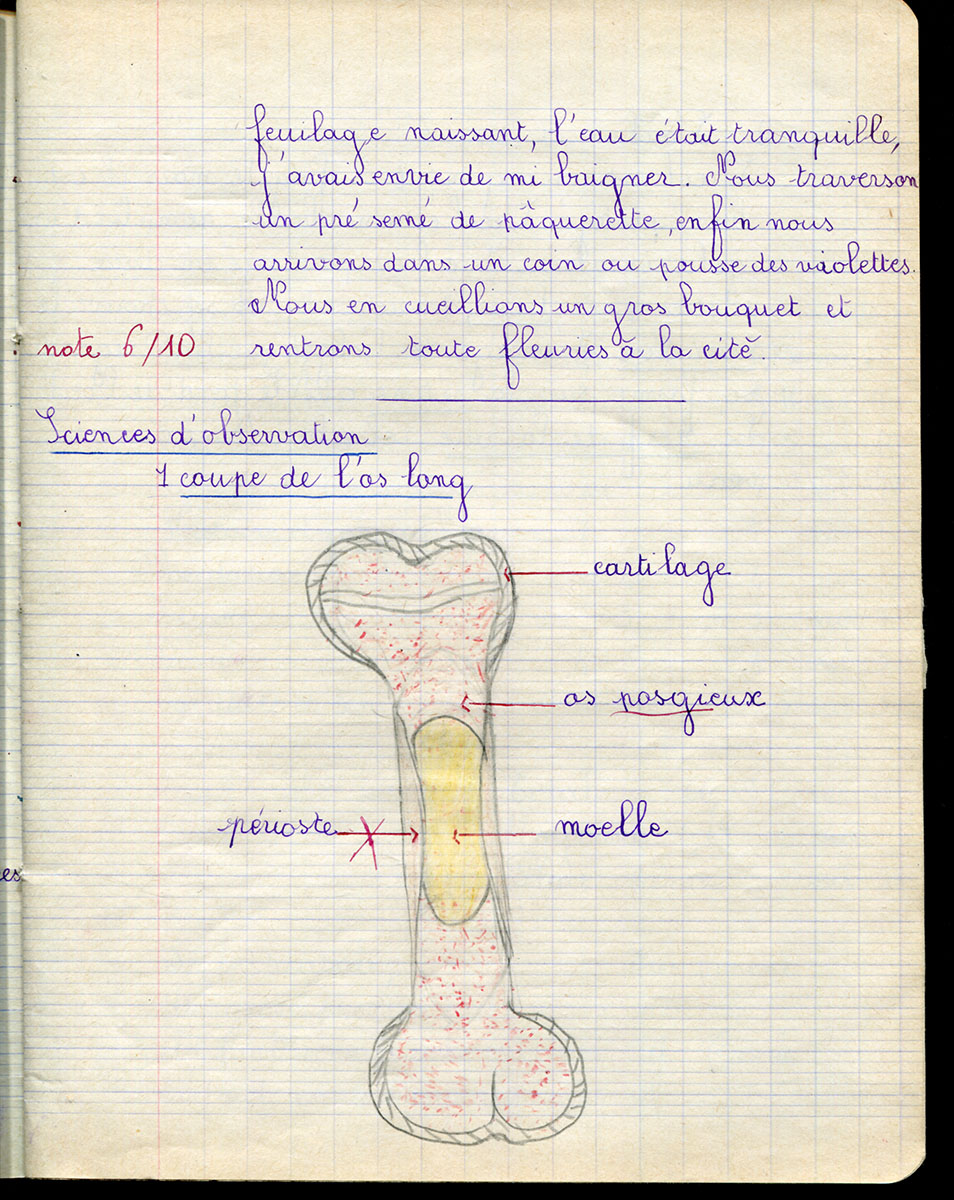 feuilage naissant, l'eau était tranquille,
j'avais envie de mi baigner. Nous traverson
un pré semé de pâquerette, enfin nous
arrivons dans un coin ou pousse des violettes.
Nous en cueillians un gros bouquet et
note 6/10 rentrons toute fleuries à la cité.
Sciences d'observation
1 coupe de l'os long
cartilage
os posgieux
périoste
moelle
es